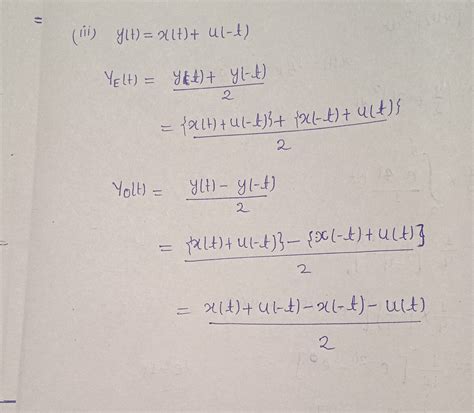 =
(iii) y(t) = x(t) + u(-t)
Y_E(t) = y(t) + y(-t) / 2
= {x(t) + u(-t)} + {x(-t) + u(t)} / 2
Y_O(t) = y(t) - y(-t) / 2
= {x(t) + u(-t)} - {x(-t) + u(t)} / 2
= x(t) + u(-t) - x(-t) - u(t) / 2